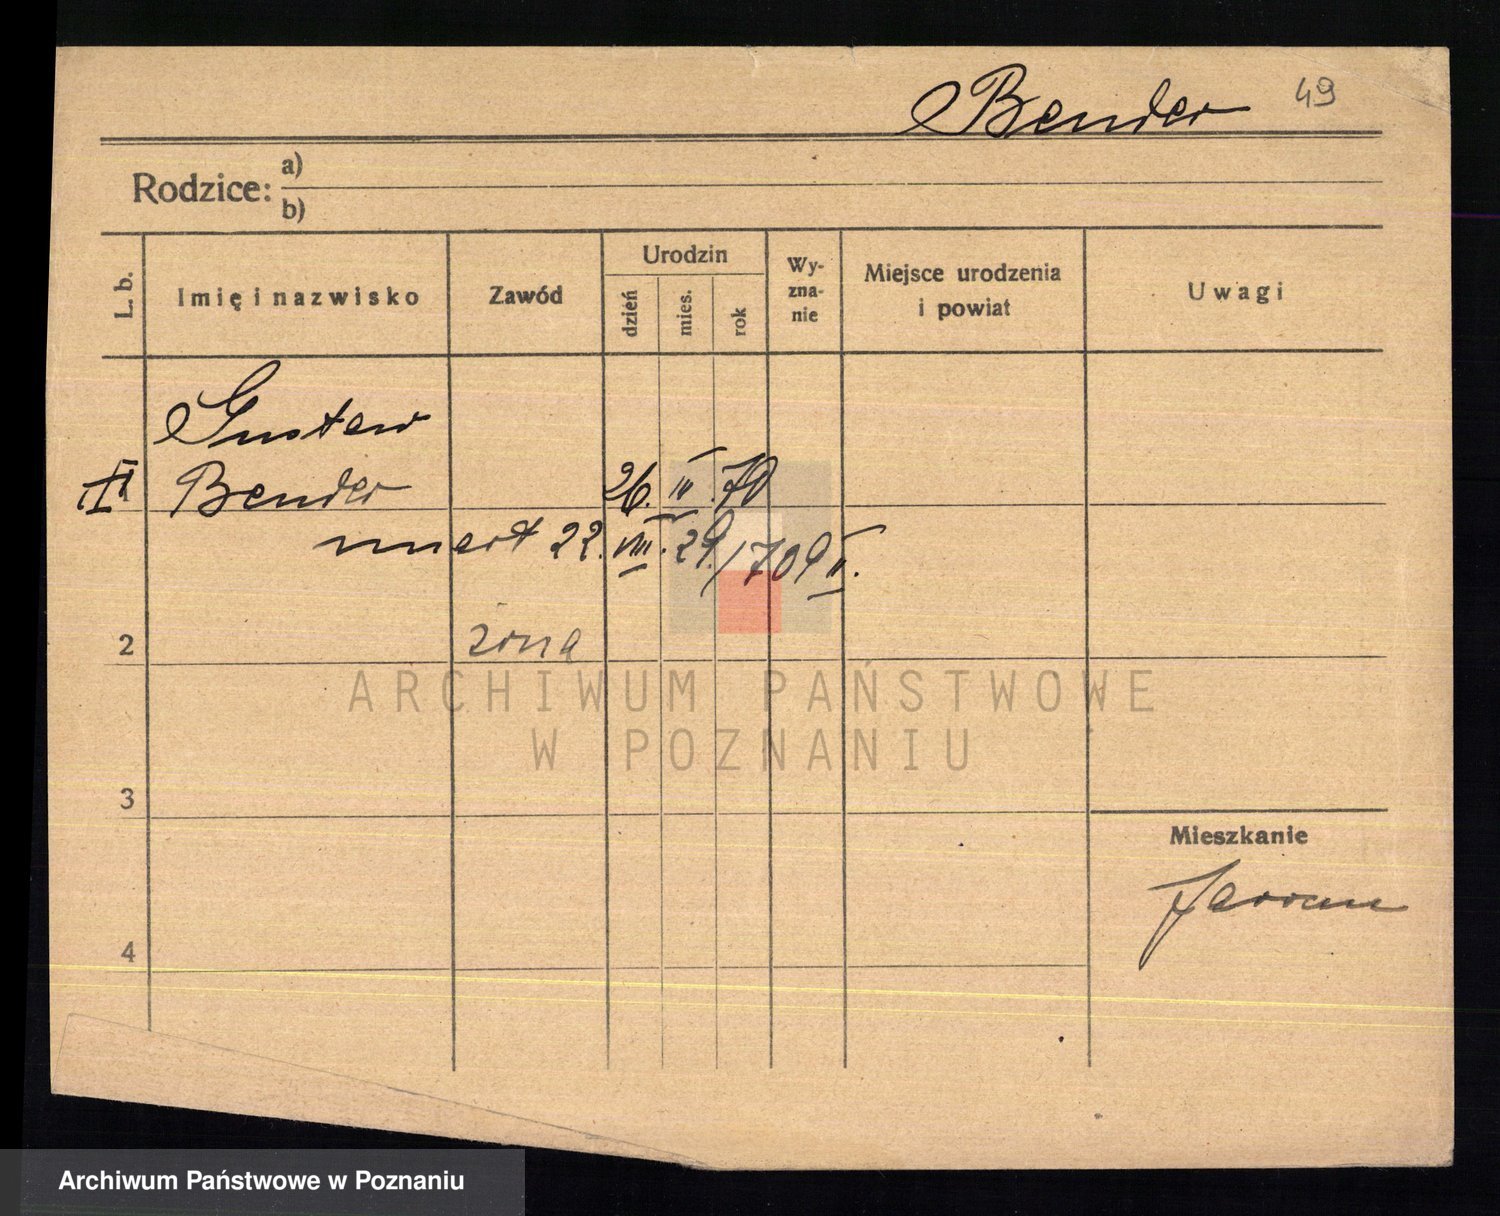 Bender 49
Rodzice: a)
b)
L. b.
Imię i nazwisko
Zawód
Urodzin
dzień
mies.
rok
Wy-
zna-
nie
Miejsce urodzenia
i powiat
Uwagi
Gustaw
Bender 26. III. 70
1
umarł 22. VIII. 29. / 709 II.
2 żona
3
4
Mieszkanie
ARCHIWUM PAŃSTWOWE
W POZNANIU
Archiwum Państwowe w Poznaniu